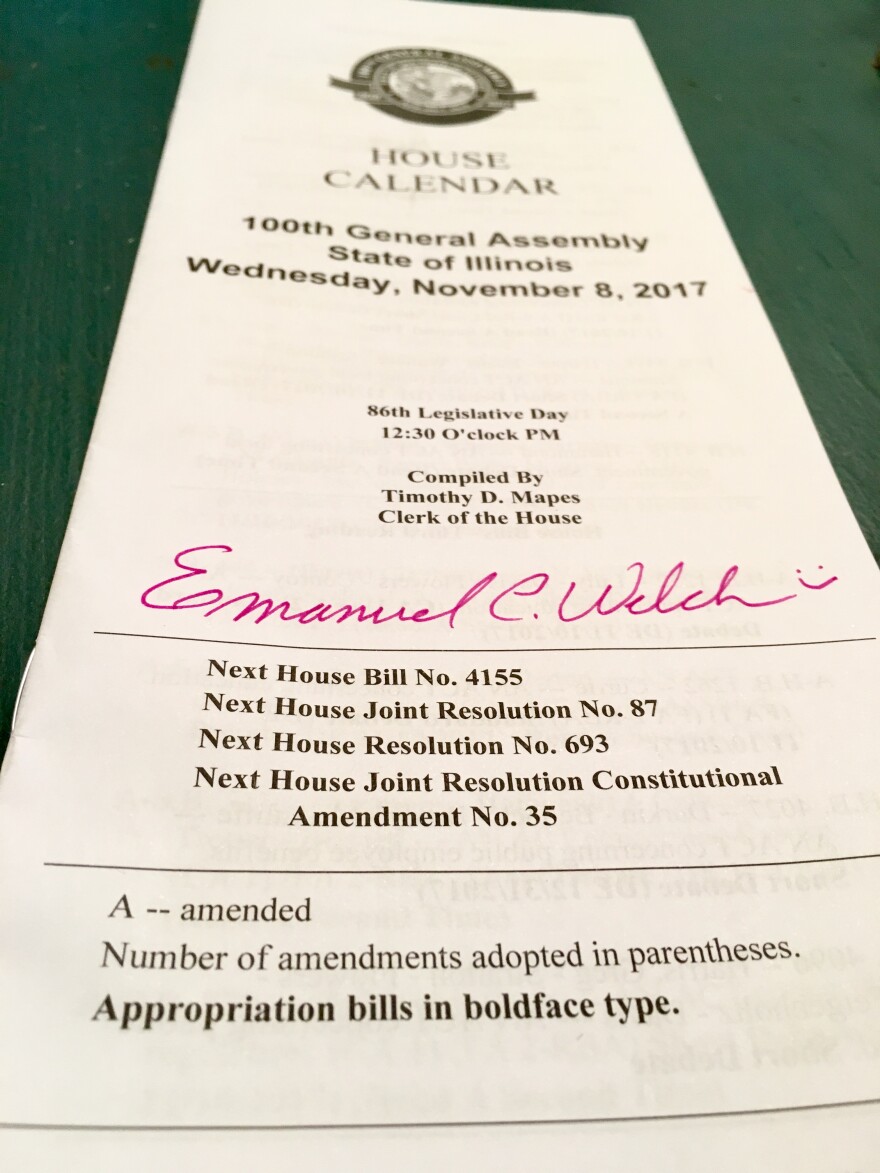 HOUSE
CALENDAR
100th General Assembly
State of Illinois
Wednesday, November 8, 2017
86th Legislative Day
12:30 O'clock PM
Compiled By
Timothy D. Mapes
Clerk of the House
Emanuel C. Welch
Next House Bill No. 4155
Next House Joint Resolution No. 87
Next House Resolution No. 693
Next House Joint Resolution Constitutional
Amendment No. 35
A -- amended
Number of amendments adopted in parentheses.
Appropriation bills in boldface type.